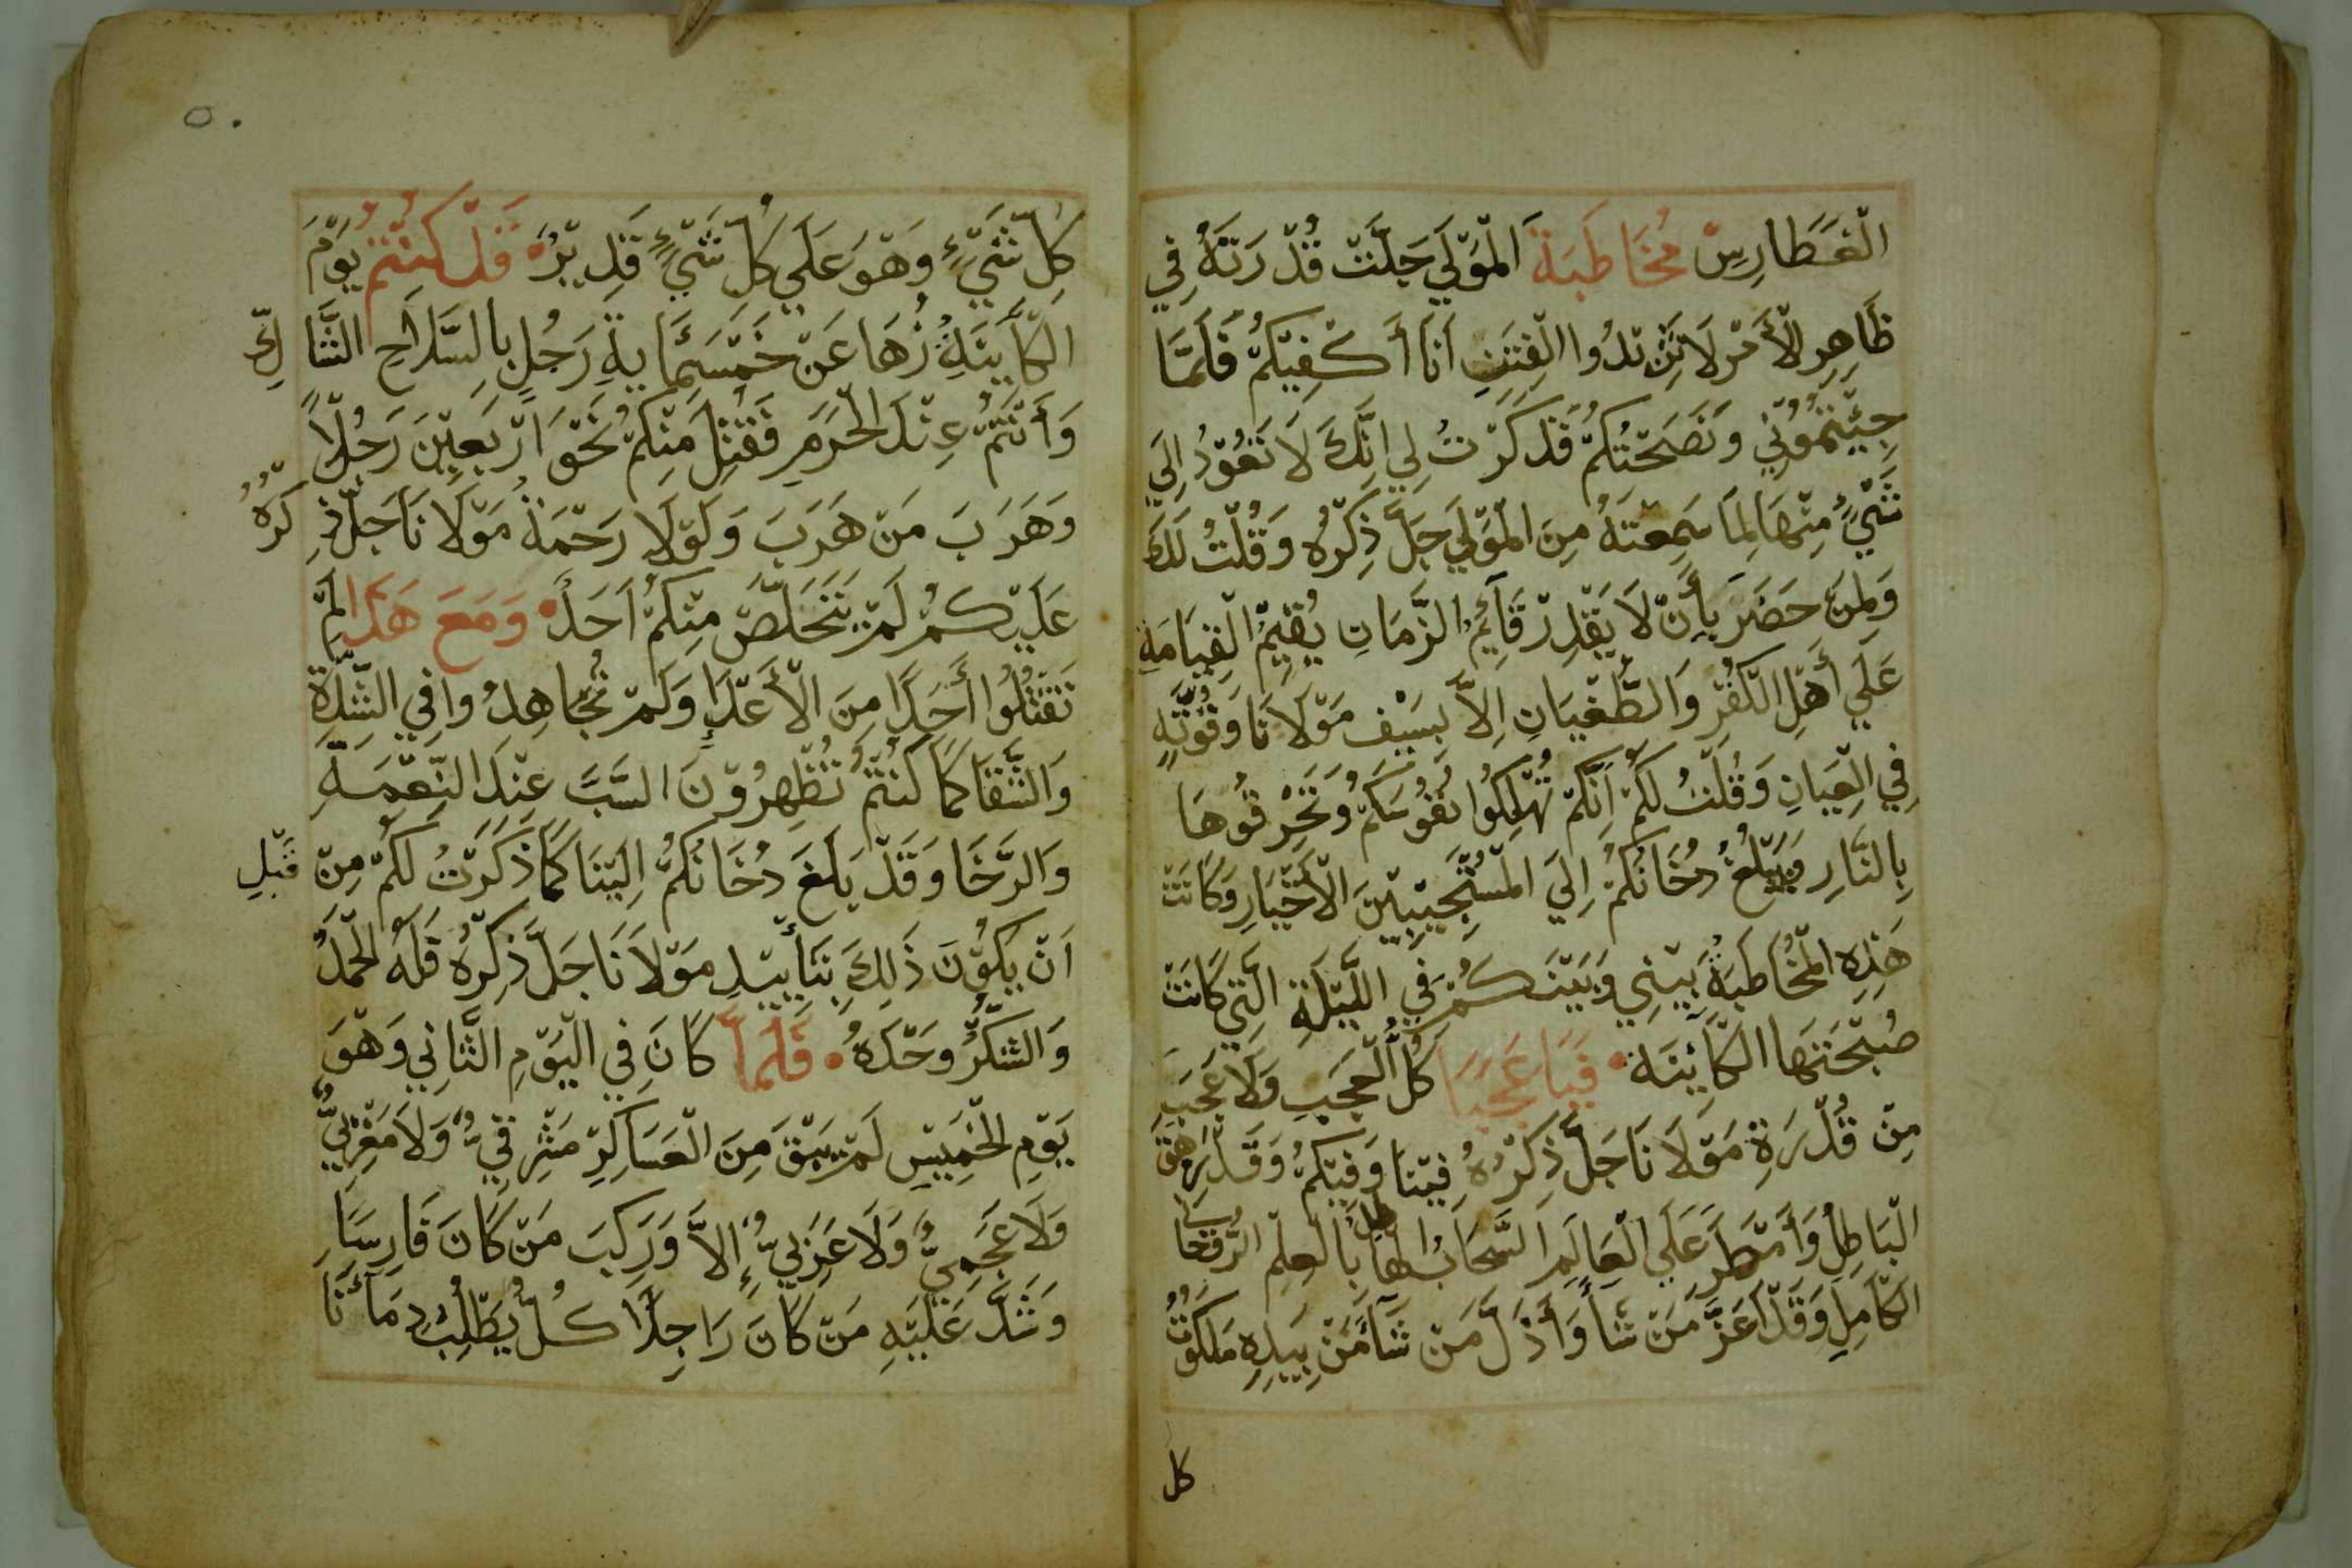 الْغَطَارِسْ مُخَاطَبَةَ الْمَوْلَي جَلَّتْ قُدْرَتَهُ فِي
ظَاهِرِ الْأَمْرِ لَا تَنْدُوا الْفِتَنِ أَنَا أَكْفِيْكُمْ فَلَمَّا
جِيْتُمُوْنِي وَنَصَحْتُكُمْ فَذَكَرْتُ لِي اِنَّكَ لَا تَعُوْدُ اِلَي
شَيْءٍ مِنْهَا لِمَا سَمِعْتَهُ مِنَ الْمَوْلَي جَلَّ ذِكْرُه وَقُلْتُ لَكَ
وَلِمَنْ حَضَرَ بِأَنْ لَا يَقْدِرْ قَآئِمُ الزَّمَانِ يُقِيْمُ الْقِيَامَةِ
عَلَي أَهْلِ الْكُفْرِ وَالطُّغْيَانِ اِلاَّ بِسَيْفِ مَوْلَانَا وَقُوَّتِهِ
فِي الْعِيَانِ وَقُلْتُ لَكُمْ اَنَّكُمْ تُهْلِكُوا نُفُوْسَكُمْ وَتَحْرِقُوْهَا
بِالنَّارِ وَيَبْلُغُ دُخَانُكُمْ اِلَيَ الْمُسْتَجِيْبِيْنَ الْأَخْيَارِ وَكَانَتْ
هَذِهِ الْمُخَاطَبَةُ بَيْنِي وَبَيْنَكُمْ فِي اللَّيْلَةِ الَّتِي كَانَتْ
صُبْحَتَهَا الْكَآئِنَة • فَيَا عَجَبًا كُلُّ الْعَجَبِ وَلَا عَجَبَ
مِنْ قُدْرَةِ مَوْلَانَا جَلَّ ذِكْرُهُ فِيْنَا وَفِيْكُمْ وَقَدْ زَهَقَ
الْبَاطِلُ وَأَمْطَرَ عَلَي الْعَالَمِ السَّحَابُ الهاطل بِالْعِلْمِ الرُّوْحَاني
الْكَامِلِ وَقَدْ اَعَزَّ مَنْ شَأَ وَأَذَلَّ مَنْ شَأَ مَنْ بِيَدِهِ مَلَكُوْتُ
كل
٥٠
كُلِّ شَيْءٍ وَهْوَ عَلَي كُلِّ شَيْءٍ قَدِيْرُ • قَدْ كُنْتُمْ يَوْمَ
الْكَآيِنَةِ زُهَا عَنْ خَمْسَمِائَيةِ رَجُلٍ بِالسَّلَاحِ الشَّاكِّ
وَأَنْتُمْ عِنْدَ الْحَرَمِ فَقُتِلَ مِنْكُمْ نَحْوَ اَرْبَعِيْنَ رَجُلاً
وَهَرَبَ مَنْ هَرَبَ وَلَوْلَا رَحْمَةُ مَوْلَانَا جَلَّ ذِكْرُهُ
عَلَيْكُمْ لَمْ يَتَخَلَّصْ مِنْكُمْ اَحَدًا • وَمَعَ هَذَا لَمْ
تَقْتُلُوا أَحَدًا مِنَ الْأَعْدَاءِ وَلَمْ تُجَاهِدُوا فِي الشِّدَّةِ
وَالشَّقَا كَمَا كُنْتُمْ تُظْهِرُوْنَ السَّبَّ عِنْدَ النِّعْمَةِ
وَالرَّخَا وَقَدْ بَلَغَ دُخَانُكُمْ اِلَيْنَا كَمَا ذَكَرْتُ لَكُمْ مِنْ قَبْلِ
اَنْ يَكُوْنَ ذَلِكَ بِتَأْيِيْدِ مَوْلَانَا جَلَّ ذِكْرُهُ فَلَهُ الْحَمْدُ
وَالشُّكْرُ وَحْدَهُ • فَلَمَّا كَانَ فِي الْيَوْمِ الثَّانِي وَهْوَ
يَوْمِ الْخَمِيْسِ لَمْ يَبْقَ مِنَ الْعَسَاكِرِ مَشْرِقِيٌّ وَلَا مَغْرِبِيٌّ
وَلَا عَجَمِيٌّ وَلَا عَرَبِيٌّ إِلاَّ وَرَكِبَ مَنْ كَانَ فَارِسًا
وَشَدَّ عَلَيْهِ مَنْ كَانَ رَاجِلًا كُلٌّ يَطْلُبُ دِمَاءَنَا